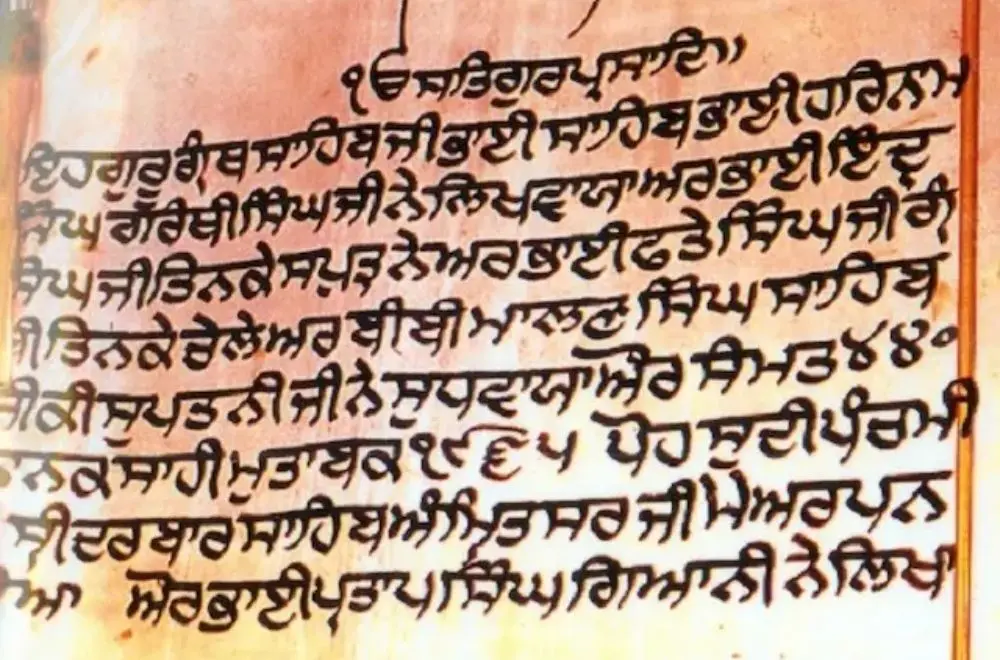 ੧ੳ ਸਤਿਗੁਰਪ੍ਰਸਾਦਿ॥
ਇਹਗੁਰੂਗ੍ਰੰਥਸਾਹਿਬਜੀਭਾਈ ਸਾਹਿਬਭਾਈਹਰਿਨਾਮ
ਸਿੰਘ ਗਰੰਥੀਸਿੰਘਜੀਨੇਲਿਖਵਾਯਾਅਰਭਾਈਇੰਦ੍ਰ
ਸਿੰਘ ਜੀਤਿਨਕੇ ਸਪੁਤ੍ਰ ਨੇਅਰਭਾਈਫਤੇਸਿੰਘਜੀ
ਤਿਨਕੇ ਚੇਲੇਅਰ ਬੀਬੀ ਮਾਲਣ ਸਿੰਘ ਸਾਹਿਬ
ਜੀਕੀ ਸੁਪਤਨੀਜੀਨੇ ਸੁਧਵਾਯਾਔਰ ਸੰਮਤ ੪੪੦
ਨਾਨਕਸਾਹੀਮੁਤਾਬਕ ੧੯੬੫ ਪੋਹ ਸੁਦੀਪੰਚਮੀ
ਸ੍ਰੀਦਰਬਾਰਸਾਹਿਬਅੰਮ੍ਰਿਤਸਰਜੀਮੇਂਅਰਪਨ
ਔਰਭਾਈਪ੍ਰਤਾਪਸਿੰਘਗਿਆਨੀ ਨੇਲਿਖਾ